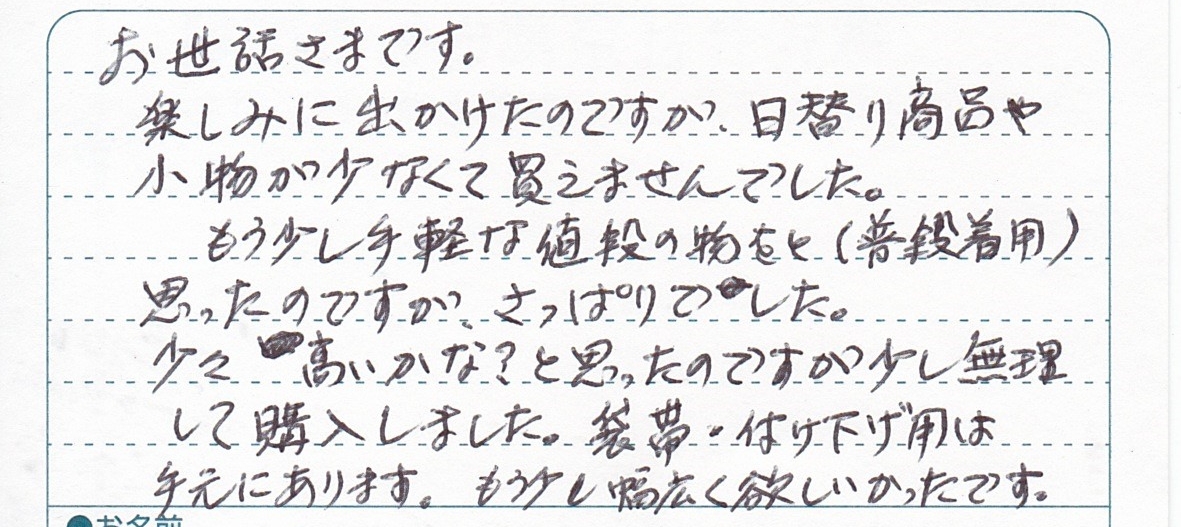 お世話さまです。
楽しみに出かけたのですが、日替り商品や
小物が少なくて買えませんでした。
もう少し手軽な値段の物をと(普段着用)
思ったのですが、さっぱりでした。
少々高いかな?と思ったのですが少し無理
して購入しました。袋帯・付け下げ用は
手元にあります。もう少し幅広く欲しいかったです。
●お名前